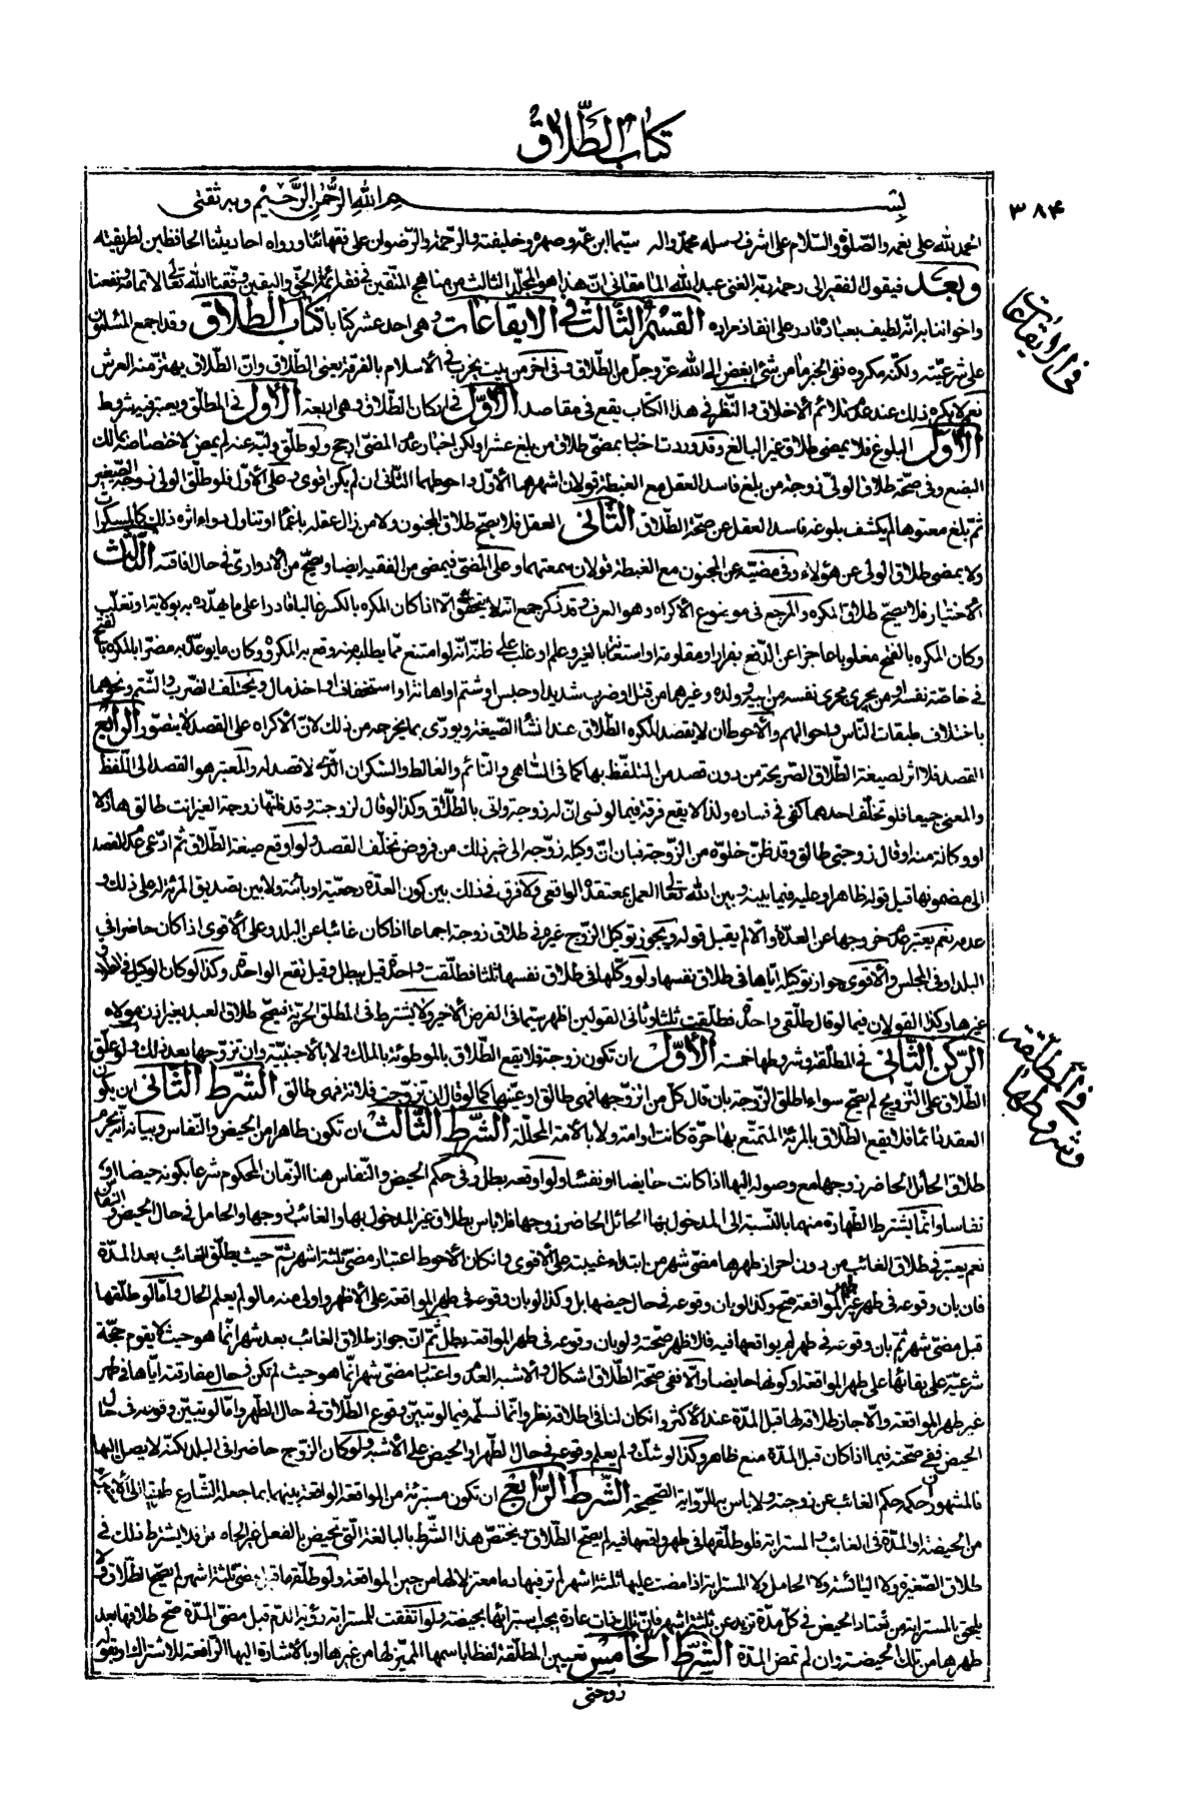 كتاب الطّلاق
٣٨۴
بسم الله الرّحمن الرّحيم وبه ثقتى
الحمد لله على نعمه والصّلوة والسّلام على اشرف رسله محمّد واله سيّما ابن عمّه وصهره وخليفته والرّحمة والرّضوان على فقهائنا ورواة احاديثنا الحافظين لطريقته
وبعد فيقول الفقير الى رحمة ربّه الغنى عبد الله المامقانى انّ هذا هو المجلّد الثالث من مناهج المتّقين فى فقه ائمّة الحقّ واليقين وفّقنا الله تعالى لاتمامه ونفعنا
واخواننا به انّه لطيف بعباده قادر على انفاذ مراده القسم الثالث فى الايقاعات وهى احد عشر كتابا كتاب الطلاق وقد اجمع المسلمون
على شرعيّته ولكنّه مكروه ففى الخبر ما من شئ ابغض الى الله عزّ وجلّ من الطّلاق وفى اخر من بيت يخرب فى الاسلام بالفرقة يعنى الطّلاق وانّ الطّلاق يهتزّ منه العرش
نعم لا يكره ذلك عند عدم تلائم الاخلاق والنّظر فى هذا الكتاب يقع فى مقاصد الاوّل فى اركان الطّلاق وهى اربعة الاول فى المطلّق ويعتبر فيه شروط
الاوّل البلوغ فلا يمضى طلاق غير البالغ وقد وردت اخبار بمضىّ طلاق من بلغ عشرا ولكن اختيار عدم المضىّ ارجح ولو طلّق وليّه عنه لم يمض لاختصاصه بمالك
البضع وفى صحّة طلاق الولىّ زوجة من بلغ فاسد العقل مع الغبطة قولان اشهرهما الاوّل واحوطهما الثّانى ان لم يكن اقوى وعلى الاوّل فلو طلّق الولى زوجة الصّغير
ثمّ بلغ معتوها لم يكشف بلوغه فاسد العقل عن صحّة الطّلاق الثّانى العقل فلا يصحّ طلاق المجنون ولا من زال عقله باغماء او تناول دواء اثره ذلك كالمسكرات
ولا يمضى طلاق الولى عن هؤلاء وفى مضيّه عن المجنون مع الغبطة قولان وعلى المضىّ فيمضى من الفقيه ايضا ويصحّ من الادوارى فى حال افاقته الثّالث
الاختيار فلا يصحّ طلاق المكره والمرجع فى موضوع الاكراه هو العرف وقد ذكر جمع انّه لا يتحقّق الّا اذا كان المكره بالكسر غالبا قادرا على ما هدّده به بولاية او تغلّب
وكان المكره بالفتح مغلوبا عاجزا عن الدّفع بفرار او مقاومة او استغاثة بالغير وعلم او غلب على ظنّه انّه لو امتنع ممّا يطلبه منه وقع به المكروه وكان ما يوعّده به مضرّا بالمكره بالفتح
فى خاصّة نفسه او من يجرى مجرى نفسه من ابيه وولده وغيرهما من قتل او ضرب شديد او حبس او شتم او اهانة او استخفاف او اخذ مال ويختلف الضّرب والشّتم ونحوهما
باختلاف طبقات النّاس واحوالهم والاحوط ان لا يقصد المكره الطّلاق عند انشاء الصّيغة ويورّى بما يخرجه من ذلك لانّ الاكراه على القصد لا يتصوّر الرّابع
القصد فلا اثر لصيغة الطّلاق الصّريحة من دون قصد من المتلفّظ بها كما فى السّاهى والنّائم والغالط والسّكران الّذى لا قصد له والمعتبر هو القصد الى اللّفظ
والمعنى جميعا فلو تخلّف احدهما كفى فى فساده ولذا لا يقع فرقة فيما لو نسى انّ له زوجة واتى بالطّلاق وكذا لو قال لزوجته وقد ظنّها زوجة الغير انت طالق هازلا
او وكالة منه او قال زوجتى طالق وقد ظنّ خلوّه من الزّوجة فبان انّ وكيله زوّجه الى غير ذلك من فروض تخلّف القصد ولو اوقع صيغة الطّلاق ثمّ ادّعى عدم القصد
الى مضمونها قبل قوله ظاهرا وعليه فيما بينه وبين الله تعالى العمل بمعتقده الواقعى ولا فرق فى ذلك بين كون العدّة رجعيّة او بائنة ولا بين تصديق المرئة له على ذلك و
عدمه نعم يعتبر عدم خروجها عن العدّة والّا لم يقبل قوله ويجوز توكيل الزّوج غيره فى طلاق زوجته اجماعا اذا كان غائبا عن البلد وعلى الاقوى اذا كان حاضرا فى
البلد او فى المجلس والاقوى جواز توكيله ايّاها فى طلاق نفسها ولو وكّلها فى طلاق نفسها ثلثا فطلّقت واحدة قيل يبطل وقيل تقع الواحدة وكذا لو كان الوكيل فى الطّلاق
غيرها وكذا القولان فيما لو قال طلّقى واحدة فطلّقت ثلثا وثانى القولين اظهر سيّما فى الفرض الاخير ولا يشترط فى المطلق الحرّيّة فيصحّ طلاق العبد بغير اذن مولاه
الرّكن الثّانى فى المطلّقة وشروطها خمسة الاوّل ان تكون زوجة فلا يقع الطّلاق بالموطوئة بالملك ولا بالاجنبيّة وان تزوّجها بعد ذلك ولو علّق
الطّلاق على التّزويج لم يصحّ سواء اطلق الزّوجة بان قال كلّ من اتزوّجها فهى طالق او عيّنها كما لو قال ان تزوّجت فلانة فهى طالق الشّرط الثّانى ان يكون
العقد دائما فلا يقع الطّلاق بالمرئة المتمتّع بها حرّة كانت او امة ولا بالامة المحلّلة الشّرط الثّالث ان تكون طاهرا من الحيض والنّفاس وبيانه انّه يحرم
طلاق الحائل الحاضر زوجها مع وصوله اليها اذا كانت حائضا او نفساء ولو اوقعه بطل وفى حكم الحيض والنّفاس هنا الزّمان المحكوم شرعا بكونه حيضا او
نفاسا وانّما يشترط الطّهارة منهما بالنّسبة الى المدخول بها الحائل الحاضر زوجها فلا باس بطلاق غير المدخول بها والغائب زوجها والحامل فى حال الحيض والنّفاس
نعم يعتبر فى طلاق الغائب من دون احراز طهرها مضىّ شهر من ابتداء غيبته على الاقوى وان كان الاحوط اعتبار مضىّ ثلثة اشهر ثمّ حيث يطلّق الغائب بعد المدّة
فان بان وقوعه فى طهر غير طهر المواقعة صحّ وكذا لو بان وقوعه فى حال حيضها بل وكذا لو بان وقوعه فى طهر المواقعة على الاظهر واولى منه ما لو لم يعلم الحال وامّا لو طلّقها
قبل مضىّ شهر ثمّ بان وقوعه فى طهر لم يواقعها فيه فالاظهر صحّته ولو بان وقوعه فى طهر المواقعة بطل ثمّ انّ جواز طلاق الغائب بعد شهر انّما هو حيث لا يقوم حجّة
شرعيّة على بقائها على طهر المواقعة او كونها حايضا والّا ففى صحّة الطّلاق اشكال والاشبه العدم واعتبار مضىّ شهر انّما هو حيث لم تكن فى حال مفارقته ايّاها فى طهر
غير طهر المواقعة والّا جاز طلاقه لها قبل المدّة عند الاكثر وان كان لنا فى اطلاقه نظر وانّما نسلّمه فيما لو تبيّن وقوع الطّلاق فى حال الطّهر وامّا لو تبيّن وقوعه فى حال
الحيض ففى صحّته فيما اذا كان قبل المدّة منع ظاهر وكذا لو شكّ ولم يعلم وقوعه فى حال الطّهر او الحيض على الاشبه ولو كان الزّوج حاضرا فى البلد لكنّه لا يصل اليها
فالمشهور انّ حكمه حكم الغائب عن زوجته ولا باس به للرّواية الصّحيحة الشّرط الرّابع ان تكون مستبرئة من المواقعة الواقعة بينهما بما جعله الشّارع طريقا الى الاستبراء
من الحيضة او المدّة فى الغائب والمسترابة فلو طلّقها فى طهر واقعها فيه لم يصحّ الطّلاق ويختصّ هذا الشّرط بالبالغة الّتى تحيض بالفعل غير الحامل فلا يشترط ذلك فى
طلاق الصّغيرة ولا اليائسة ولا الحامل ولا المسترابة اذا مضت عليها ثلثة اشهر لم تر فيها دما معتزلا لها من حين المواقعة ولو طلّقها قبل مضىّ ثلثة اشهر لم يصحّ الطّلاق ولا
يلحق بالمسترابة من تعتاد الحيض فى كلّ مدّة تزيد عن ثلثة اشهر فانّ تلك ذات عادة يجب استبرائها بحيضة ولو اتّفقت للمسترابة رؤية الدّم قبل مضىّ المدّة صحّ طلاقها بعد
طهرها من تلك الحيضة وان لم تمض المدّة الشّرط الخامس تعيين المطلّقة لفظا باسمها المميّز لها من غيرها او بالاشارة اليها الرّافعة للاشتراك او بقوله
زوجتى
فى الايقاعات
فى المطلّقة
وشروطها